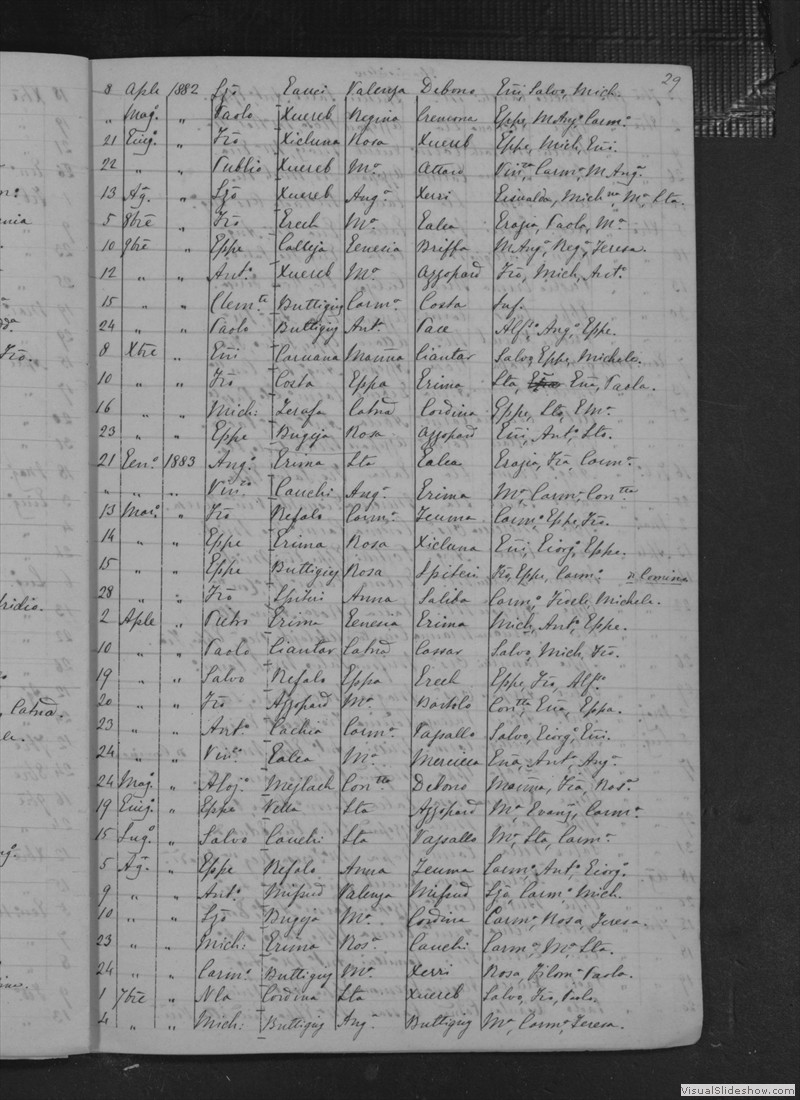 29
8 Aple 1882 Sjō Cauci Valenza Debono Eñi, Salvo, Mich.
„ Magº. „ Paolo Xuereb Regina Cremona Eppe, M Angª, Carmª.
21 Giugº. „ Frō Xicluna Rosa Xuereb Eppe, Mich, Eñi.
22 „ „ Publio Xuereb Mª. Attard Vinᶻᵃ, Carmª, M Angª.
13 Agº. „ Sjō Xuereb Angª. Xerri Mich, Mª, Sta.
5 8bre „ Frō Grech Mª. Galea Grazia, Paola, Mª.
10 9bre „ Eppe Calleja Genesia Briffa M Angª, Regª, Teresa.
12 „ „ Antº. Xuereb Mª. Azzopard Frō, Mich, Antº.
15 „ „ Clemᵗᵉ Buttigig Carmª. Costa Inf.
24 „ „ Paolo Buttigig Antª. Pace Alfº, Angª, Eppe.
8 Xbre „ Eñi Caruana Maĩna Ciantar Salvo, Eppe, Michele.
10 „ „ Frō Costa Eppa Grima Sta, Eña, Paola.
16 „ „ Mich: Zerafa Catnā Cordina Eppe, Sta, Emª.
23 „ „ Eppe Bugeja Rosa Azzopard Eñi, Antª, Sta.
21 Genº. 1883 Angº. Grima Sta Galea Grazia, Frā, Carmª.
„ „ „ Vinᶻᵒ. Cauchi Angª. Grima Mª, Carmª, Conᵗᵗᵃ
13 Marº. „ Frō Refalo Carmª. Zeuma Carmª, Eppe, Frō.
14 „ „ Eppe Grima Rosa Xicluna Eñi, Giorgº, Eppa.
15 „ „ Eppe Buttigig Rosa Spiteri Frō, Eppe, Carmº. a Comina
28 „ „ Frō Spiteri Anna Saliba Carmª, Michela.
2 Aple „ Pietro Grima Genesia Grima Mich, Antº, Eppe.
10 „ „ Paolo Ciantar Catnā Cassar Salvo, Mich, Frō.
19 „ „ Salvo Refalo Eppa Grech Eppe, Frō, Alfº.
20 „ „ Frō Azzopard Mª. Bartolo Conᵗᵗᵃ, Eña, Eppa.
23 „ „ Antº. Cachia Carmª. Vassallo Salvo, Giorgº, Eñi.
24 „ „ Vinᶻᵒ. Galea Mª. Mercieca Eña, Antª, Angª.
24 Magº. „ Alojº. Mejlach Conᵗᵗᵃ Debono Maĩna, Frā, Rosª.
19 Giugº. „ Eppe Vella Sta Azzopard Mª, Evangª, Carmª.
15 Lugº. „ Salvo Cauchi Sta Vassallo Mª, Sta, Carmª.
5 Agº. „ Eppe Refalo Anna Zeuma Carmª, Antª, Giorgª.
9 „ „ Antº. Mifsud Valenza Mifsud Sjō, Carmª, Mich.
10 „ „ Sjō Bugeja Mª. Cordina Carmª, Rosa, Teresa.
23 „ „ Mich: Grima Rosª. Cauchi Carmª, Mª, Sta.
24 „ „ Carmº. Buttigig Mª. Xerri Rosa, Filomª, Paola.
1 7bre „ Nla Cordina Sta Xuereb Salvo, Frō, Paolo.
4 „ „ Mich: Buttigig Angª. Buttigig Mª, Carmª, Teresa.
VisualSlideshow.com